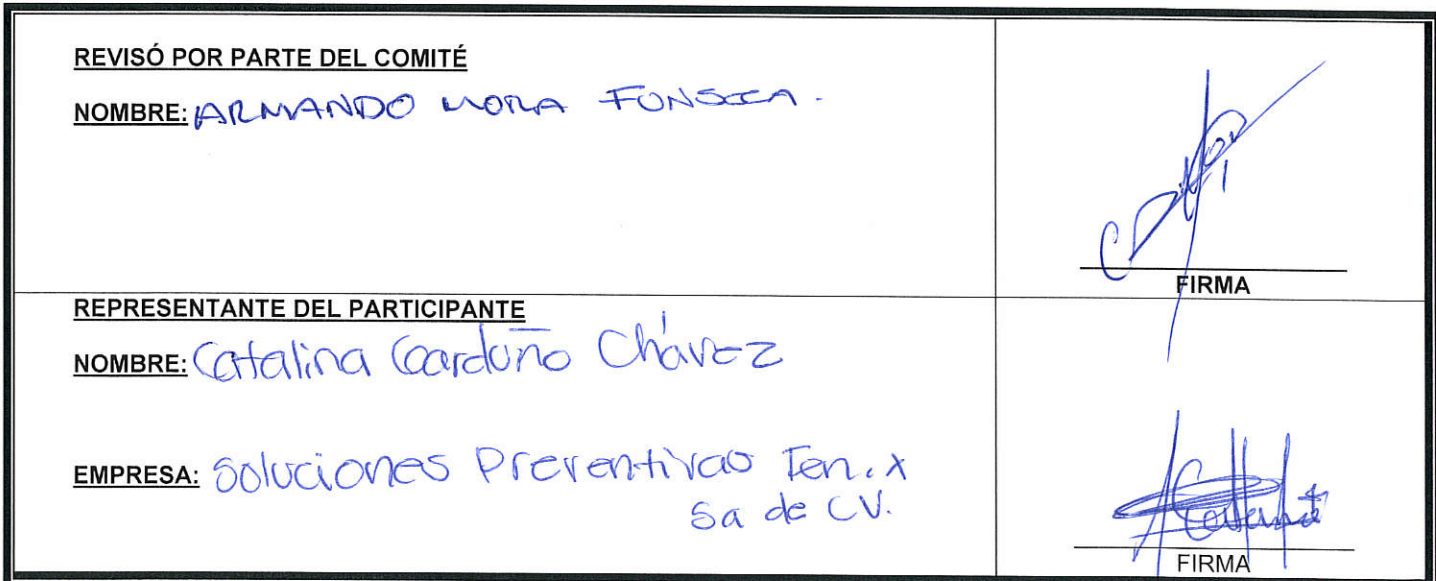 REVISÓ POR PARTE DEL COMITÉ
NOMBRE: ARMANDO MORA FONSECA.
FIRMA
REPRESENTANTE DEL PARTICIPANTE
NOMBRE: Catalina Garduño Chávez
EMPRESA: Soluciones Preventivas Ten.x
Sa de CV.
FIRMA